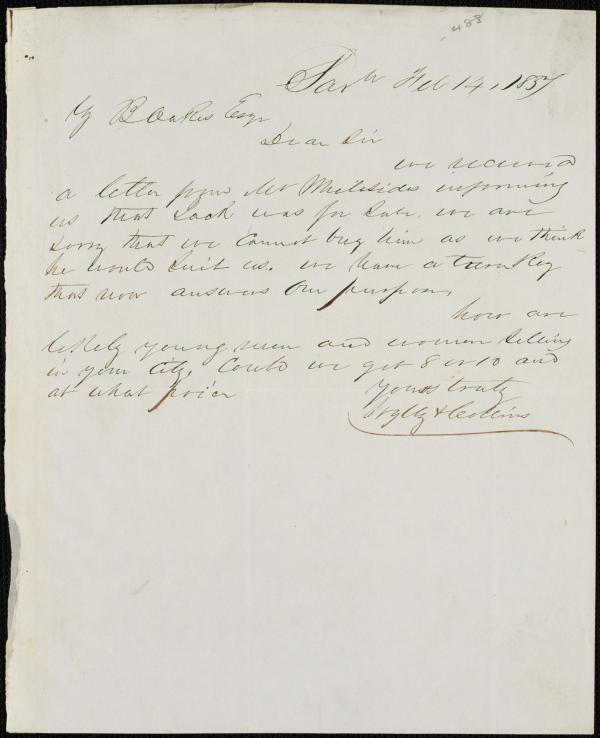 488
Savh Feb 14, 1857
Z B Oakes Esqr
Dear Sir
we received
a letter from Mr Whitesides informing
us that Jack was for Sale. we are
Sorry that we cannot buy him as we think
he would Suit us. we have a turn Key
that now answers our purpose.
how are
likely young men and women Selling
in your City. Could we get 8 or 10 and
at what price
yours truly
Wylly & Collins